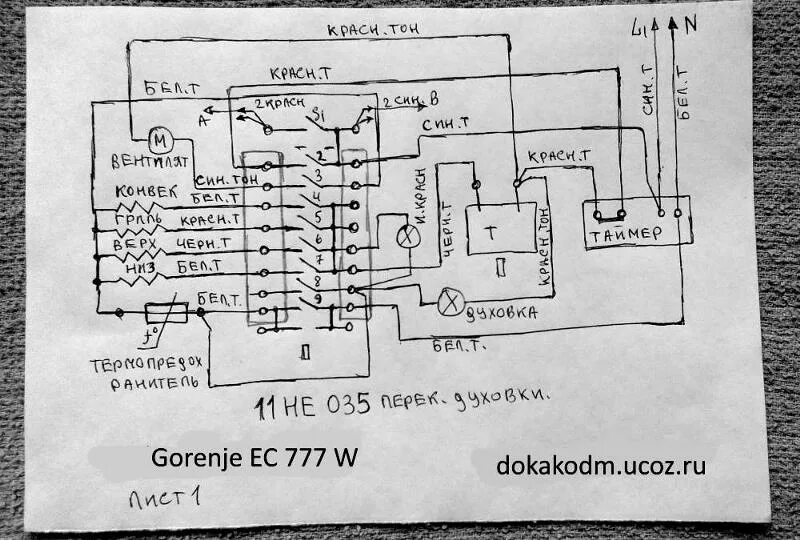 КРАСН. ТОН
L1 N
КРАСН.Т
БЕЛ.Т
2 КРАСН
2 СИН. В
А
S1
СИН.Т
СИН. Т
БЕЛ.Т
М
ВЕНТИЛЯТ
2
3
СИН. ТОН
КРАСН.Т
КОНВЕК
БЕЛ.Т
4
И.КРАСН
ГРИЛЬ
КРАСН.Т
5
ЧЕРН.Т
Т
КРАСН.ТОН
ТАЙМЕР
ВЕРХ
ЧЕРН.Т
6
НИЗ
БЕЛ.Т
7
П
8
БЕЛ.Т.
9
ДУХОВКА
t°
БЕЛ.Т.
ТЕРМОПРЕДОХ
РАНИТЕЛЬ
П
11 НЕ 035 ПЕРЕК. ДУХОВКИ.
Gorenje EC 777 W
dokakodm.ucoz.ru
ЛИСТ 1